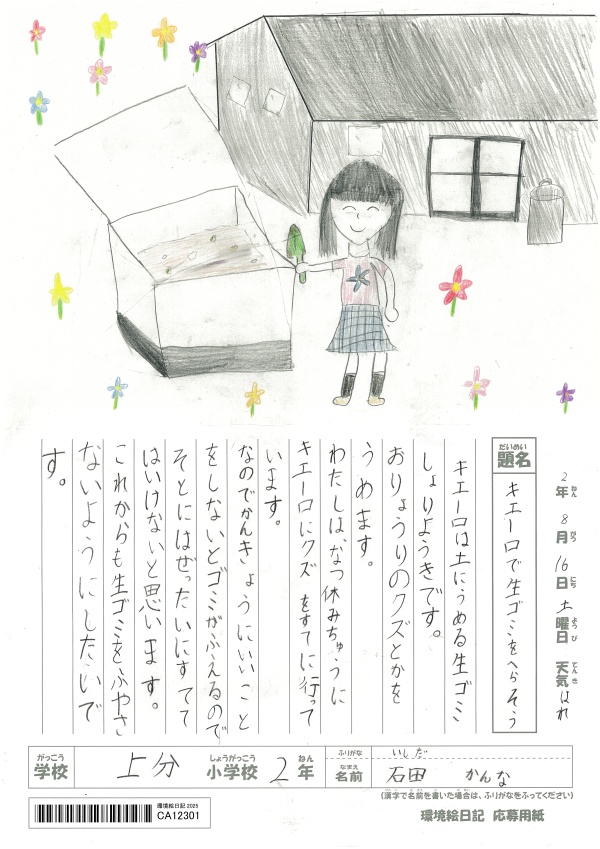 2年 8月 16日 土曜日 天気 はれ
ねん がつ にち ようび てんき
だいめい
題名
キエーロで生ゴミをへらそう
キエーロは土にうめる生ゴミ
しょりようきです。
おりょうりのクズとかを
うめます。
わたしは、なつ休みちゅうに
キエーロにクズをすてに行って
います。
なのでかんきょうにいいこと
をしないとゴミがふえるので
そとにはぜったいにすてて
はいけないと思います。
これからも生ゴミをふやさ
ないようにしたいで
す。
がっこう
学校
上分
しょうがっこう
小学校
2
ねん
年
ふりがな
いしだ
なまえ
名前
石田 かんな
(漢字で名前を書いた場合は、ふりがなをふってください)
環境絵日記 2025
CA12301
環境絵日記 応募用紙